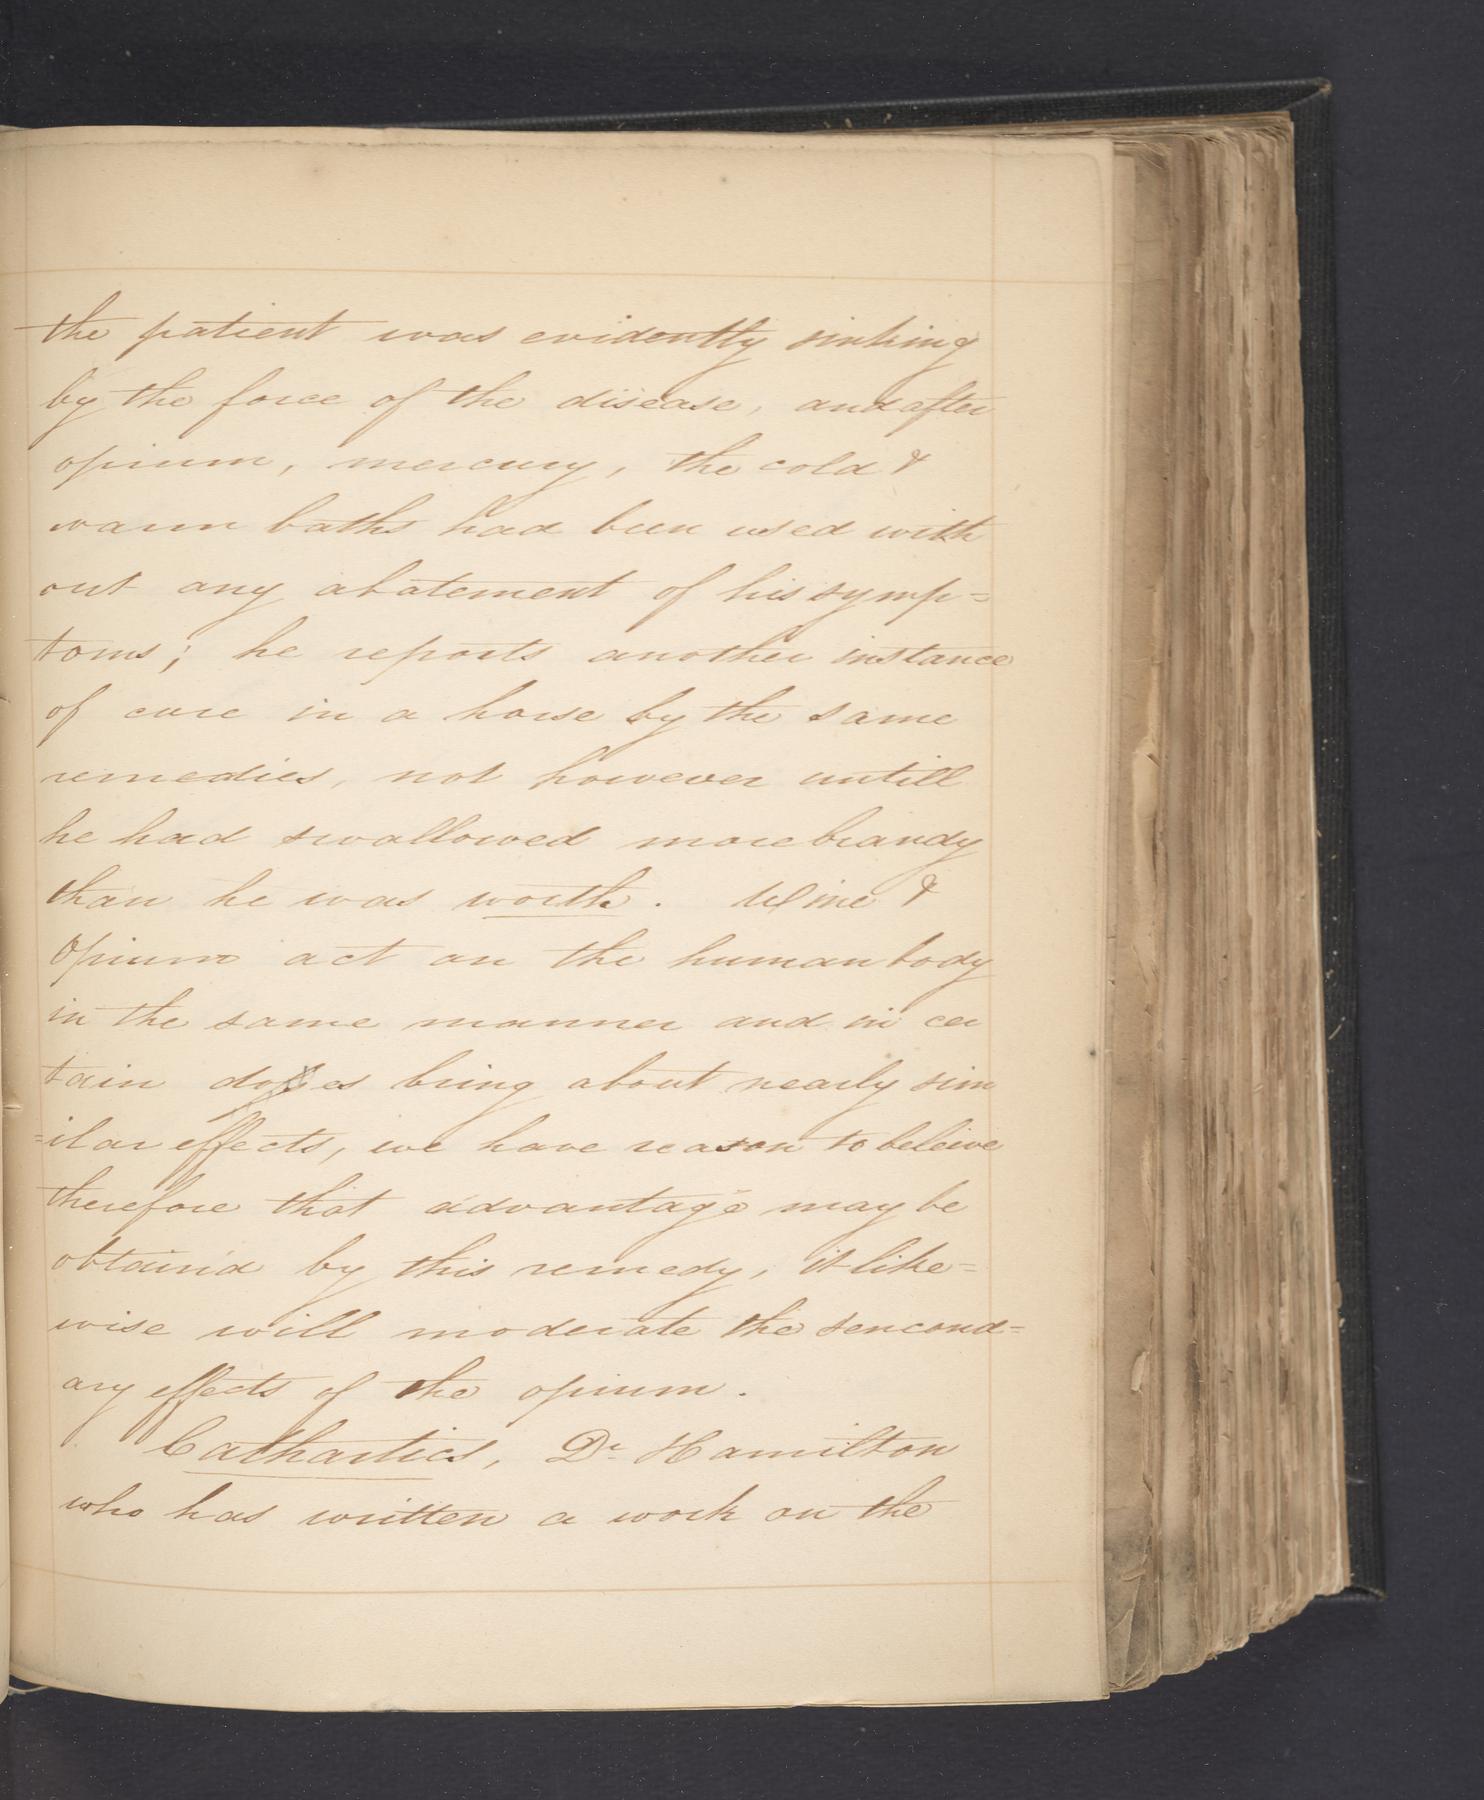 the patient was evidently sinking
by the force of the disease, and after
opium, mercury, the cold &
warm baths had been used with
out any abatement of his symp=
toms; he reports another instance
of cure in a horse by the same
remedies, not however untill
he had swallowed more brandy
than he was worth. Wine &
Opium act on the human body
in the same manner and in cer
tain doses bring about nearly sim
=ilar effects, we have reason to beleive
therefore that advantage may be
obtain'd by this remedy, it like=
wise will moderate the sencond=
ary effects of the opium.
Cathartics, Dr Hamilton
who has written a work on the